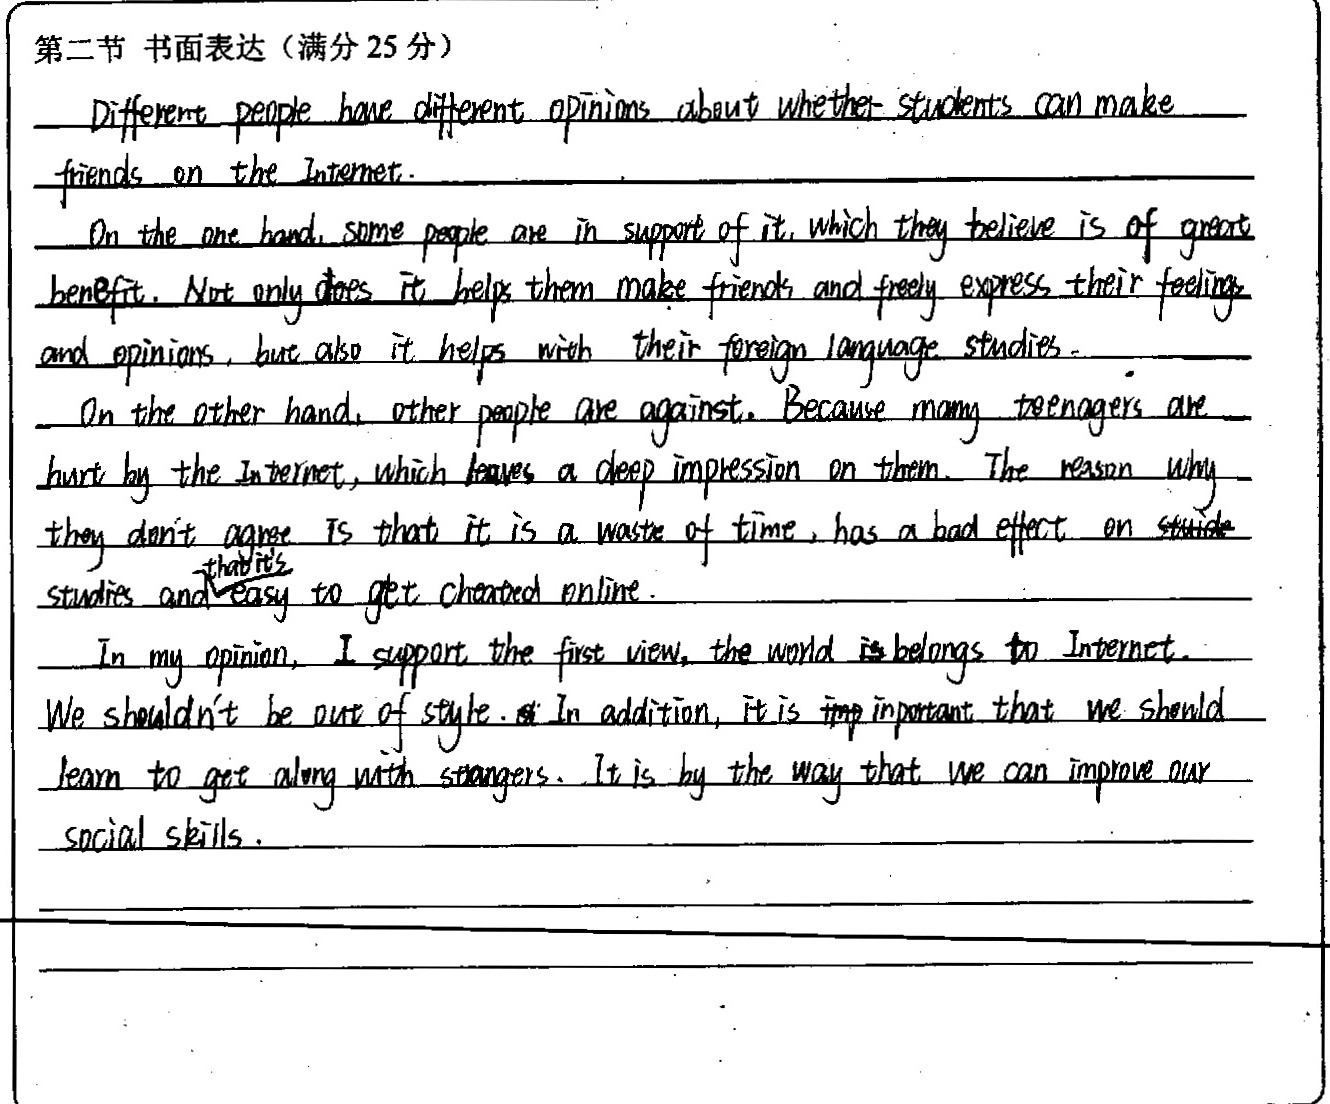 第二节 书面表达（满分 25 分）
Different people have different opinions about whether students can make
friends on the Internet.
On the one hand, some people are in support of it, which they believe is of great
benefit. Not only does it helps them make friends and freely express their feelings
and opinions, but also it helps with their foreign language studies.
On the other hand, other people are against. Because many teenagers are
hurt by the Internet, which leaves a deep impression on them. The reason why
they don't agree is that it is a waste of time, has a bad effect on
studies and that it's easy to get cheated online.
In my opinion, I support the first view, the world belongs to Internet.
We shouldn't be out of style. In addition, it is inportant that we should
learn to get along with strangers. It is by the way that we can improve our
social skills.